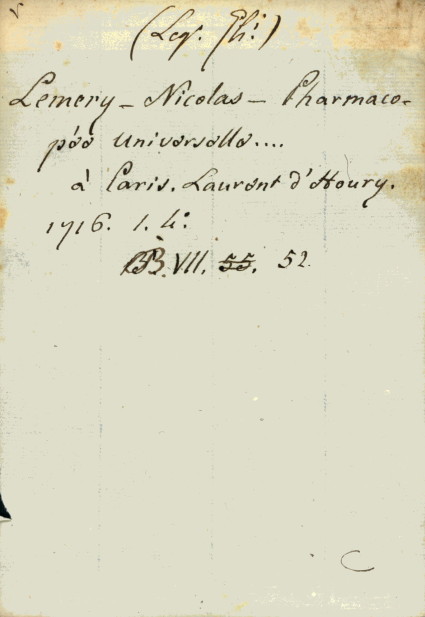 (Leg. Ghi)
Lemery - Nicolas - Pharmaco-
pée universelle....
à Paris. Laurent d'Houry.
1716. 1. 4°
BB. VII. 55. 52.